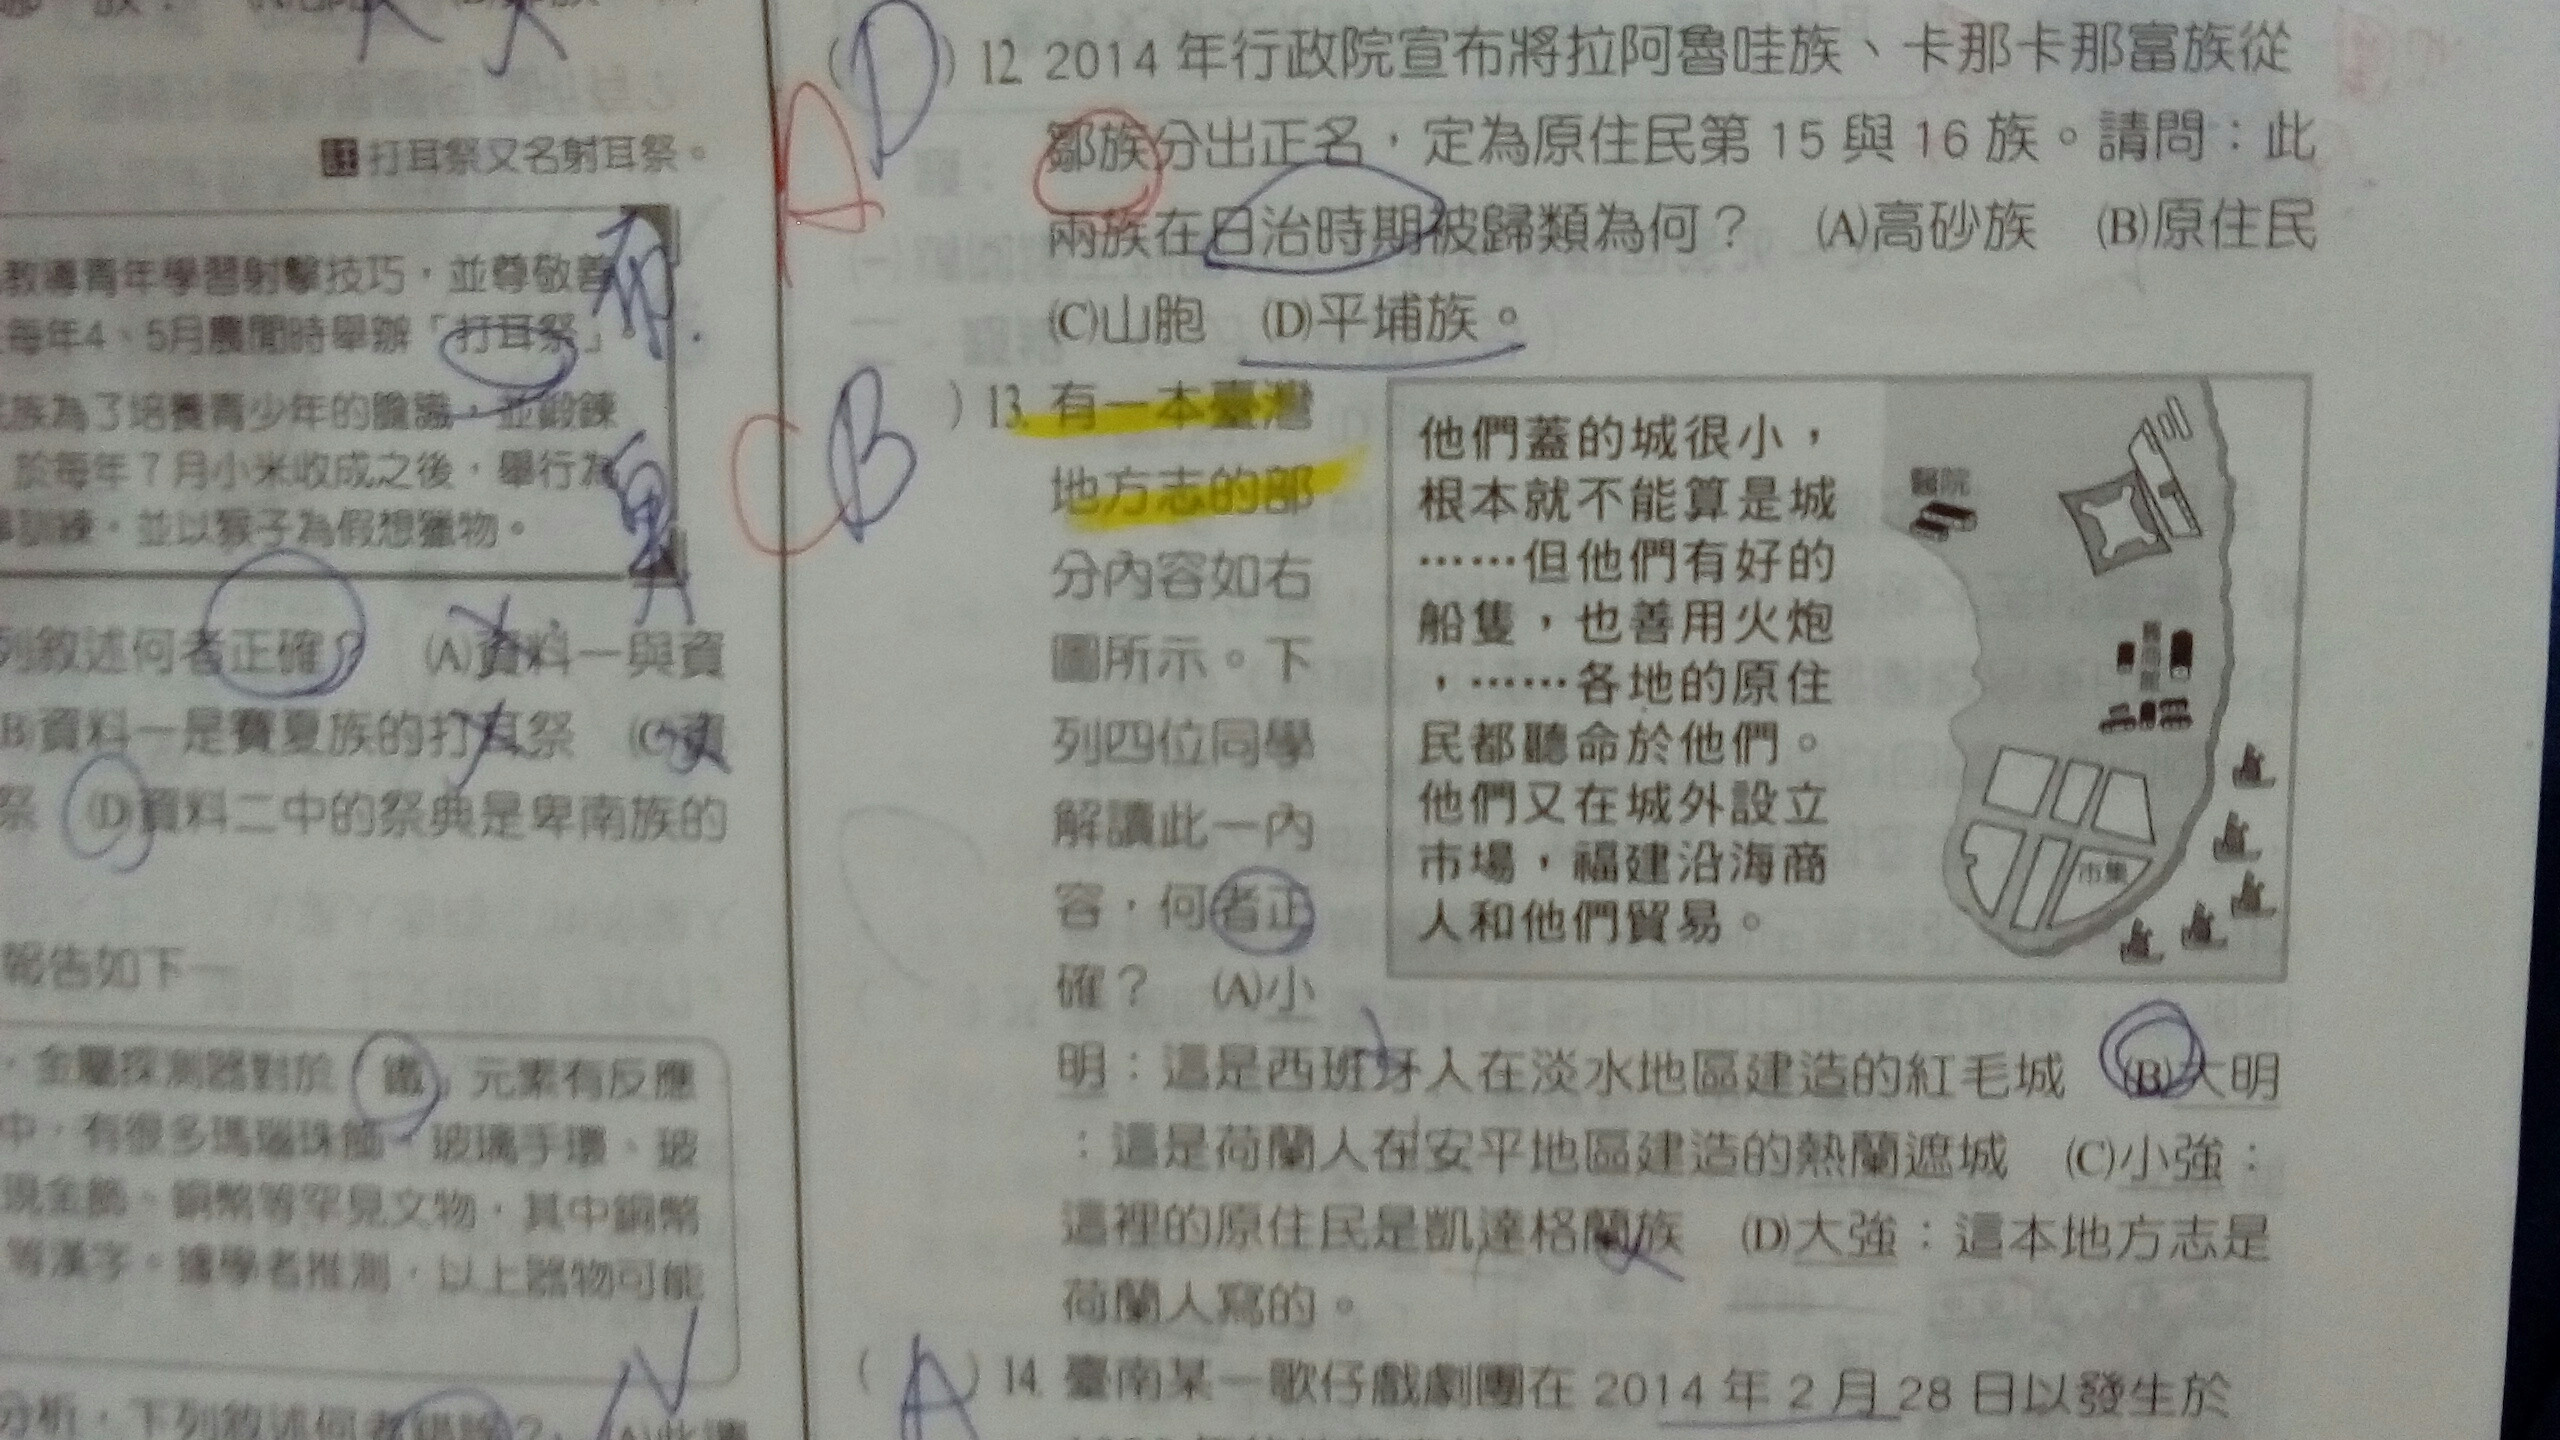 打耳祭又名射耳祭。
教導青年學習射擊技巧,並尊敬善
每年4、5月農閒時舉辦「打耳祭」。
族為了培養青少年的膽識,並鍛鍊
於每年7月小米收成之後,舉行為
訓練。並以猴子為假想獵物。
列敘述何者正確? (A)資料一與資
(B)資料一是賽夏族的打耳祭 (C)資
祭 (D)資料二中的祭典是卑南族的
報告如下—
,金屬探測器對於「鐵」元素有反應
中,有很多瑪瑙珠飾、玻璃手環、玻
現金飾、銅幣等罕見文物,其中銅幣
等漢字。據學者推測,以上器物可能
分析,下列敘述何者
A D
(  ) 12. 2014 年行政院宣布將拉阿魯哇族、卡那卡那富族從
鄒族分出正名,定為原住民第 15 與 16 族。請問:此
兩族在日治時期被歸類為何? (A)高砂族 (B)原住民
(C)山胞 (D)平埔族。
C B
) 13. 有一本臺灣
地方志的部
分內容如右
圖所示。下
列四位同學
解讀此一內
容,何者正
確? (A)小
他們蓋的城很小,
根本就不能算是城
……但他們有好的
船隻,也善用火炮
,……各地的原住
民都聽命於他們。
他們又在城外設立
市場,福建沿海商
人和他們貿易。
醫院
市集
明:這是西班牙人在淡水地區建造的紅毛城 (B)大明
:這是荷蘭人在安平地區建造的熱蘭遮城 (C)小強:
這裡的原住民是凱達格蘭族 (D)大強:這本地方志是
荷蘭人寫的。
( A ) 14. 臺南某一歌仔戲劇團在 2014 年 2 月 28 日以發生於